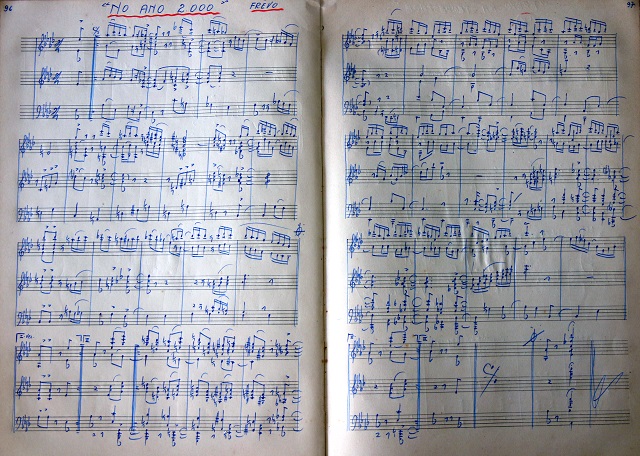 96
"NO ANO 2.000" FREVO
97